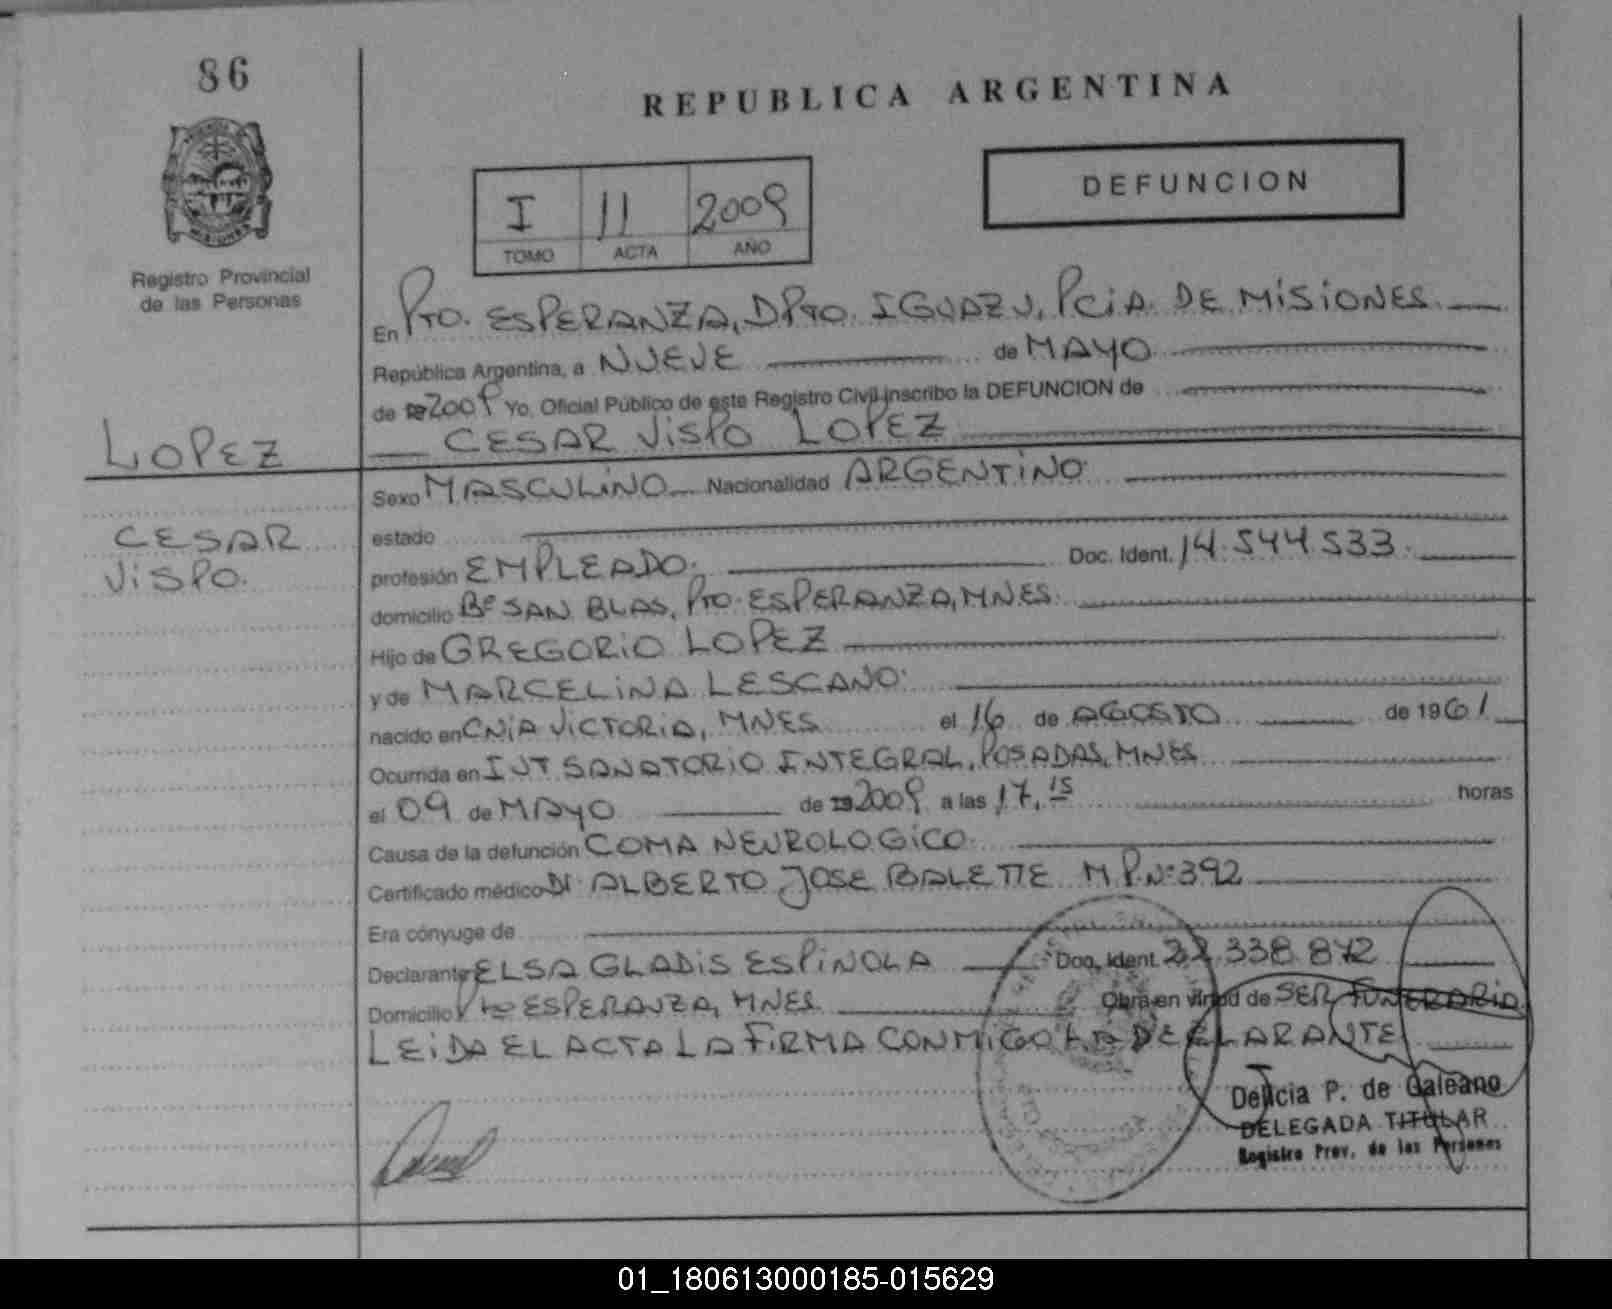 86
REPUBLICA ARGENTINA
DEFUNCION
I 11 2009
TOMO ACTA AÑO
MISIONES
Registro Provincial
de las Personas
En Pto. ESPERANZA, DPto. IGUAZU, PCIA. DE MISIONES.
República Argentina, a NUEVE de MAYO
de 19 2009 Yo, Oficial Público de este Registro Civil inscribo la DEFUNCION de
CESAR VISPO LOPEZ
LOPEZ
CESAR
VISPO.
Sexo MASCULINO Nacionalidad ARGENTINO.
estado
profesión EMPLEADO. Doc. Ident. 14.544.533.
domicilio Bº SAN BLAS, Pto. ESPERANZA, MNES.
Hijo de GREGORIO LOPEZ
y de MARCELINA LESCANO.
nacido en CNIA VICTORIA, MNES el 16 de AGOSTO de 1961
Ocurrida en INT SANATORIO INTEGRAL, POSADAS, MNES
el 09 de MAYO de 19 2009 a las 17,15 horas
Causa de la defunción COMA NEUROLOGICO.
Certificado médico Dr ALBERTO JOSE BALETTE M.P.Nº392
Era cónyuge de
Declarante ELSA GLADIS ESPINOLA Doc. Ident. 22.338.872
Domicilio Pto ESPERANZA, MNES Obra en virtud de SER FUNERARIA
LEIDA EL ACTA LA FIRMA CONMIGO LA DECLARANTE
Delicia P. de Galeano
DELEGADA TITULAR
Registro Prov. de las Personas
01_180613000185-015629